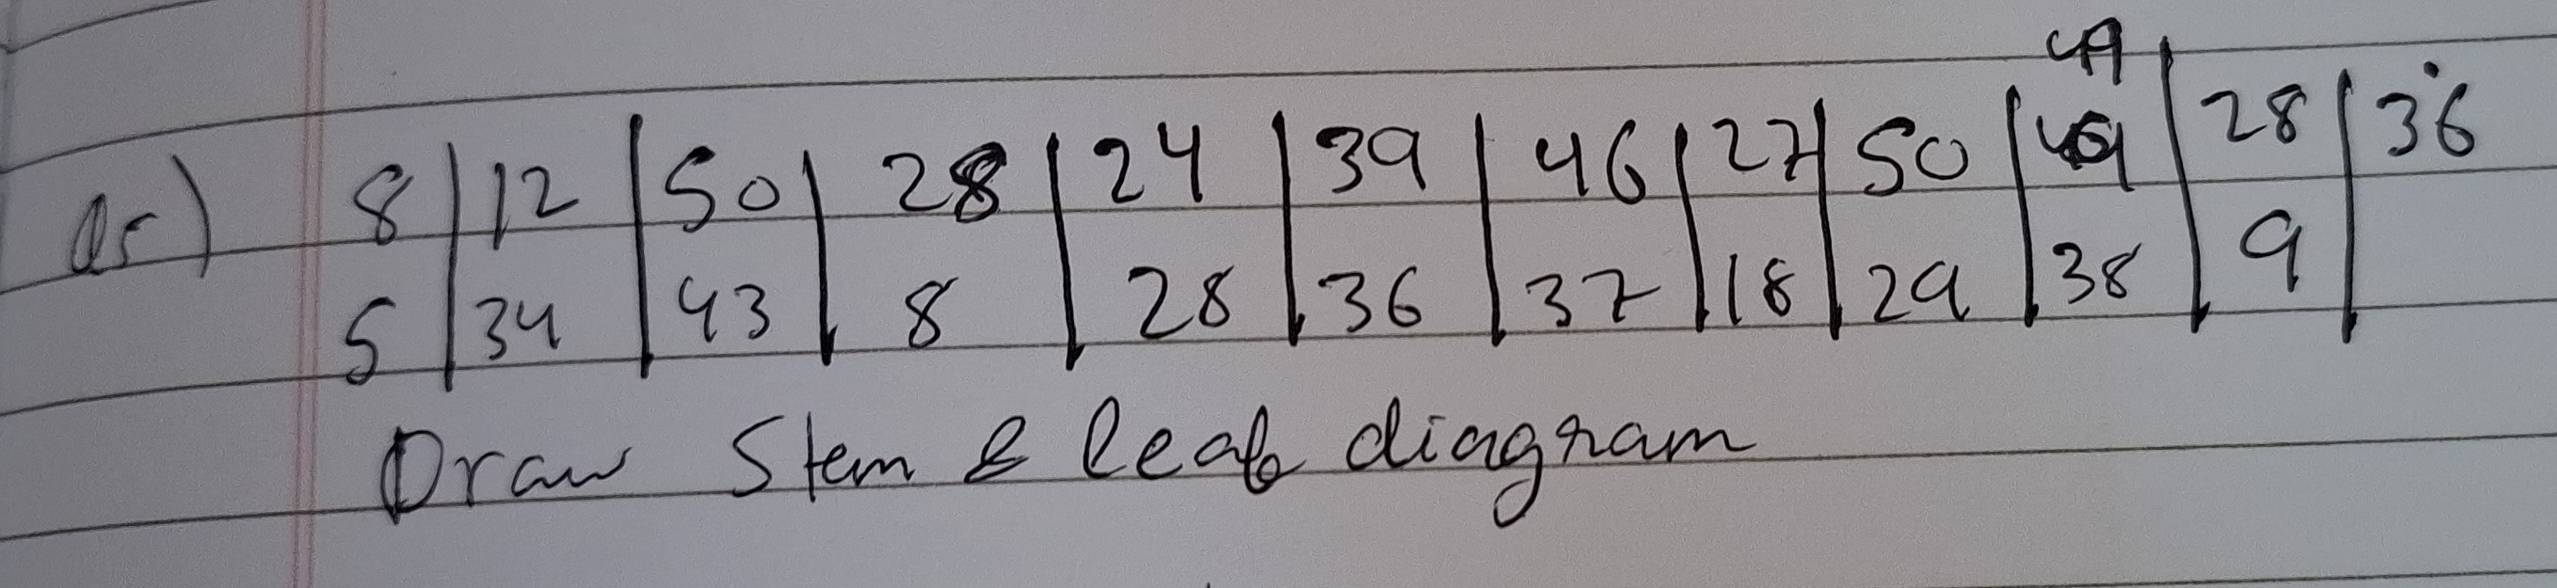 49
Q5) 8 | 12 | 50 | 28 | 24 | 39 | 46 | 27 | 50 | 49 | 28 | 36
5 | 34 | 43 | 8 | 28 | 36 | 37 | 18 | 29 | 38 | 9 |
Draw Stem & leaf diagram